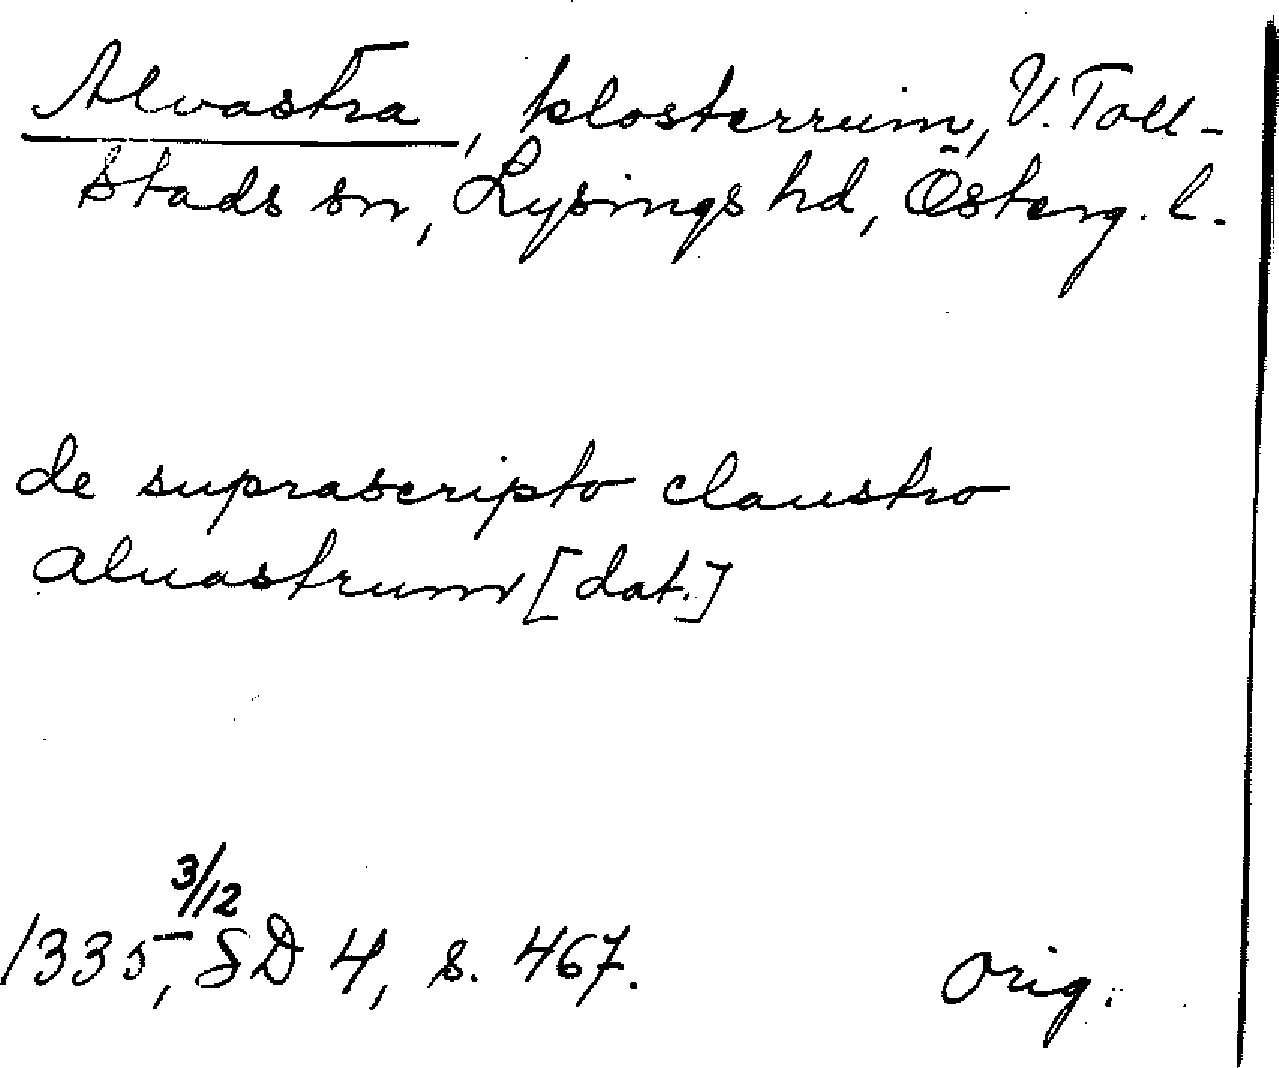 Alvastra, klosterruin, V. Toll-
stads sn, Lysings hd, Österg. l.
de suprascripto claustro
aluastrum [dat.]
3/12
1335, SD 4, s. 467. Orig.